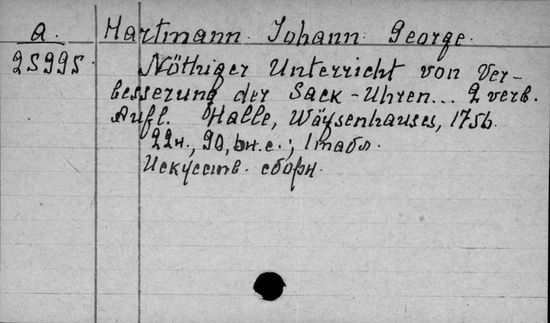 a. Hartmann Johann George.
25995. Nöthiger Unterricht von Ver-
besserung der Sack-Uhren... 2 verb.
Aufl. Halle, Wäysenhauses, 1756.
22н., 90, 6н.с.; 1табл.
Искусств. сборн.